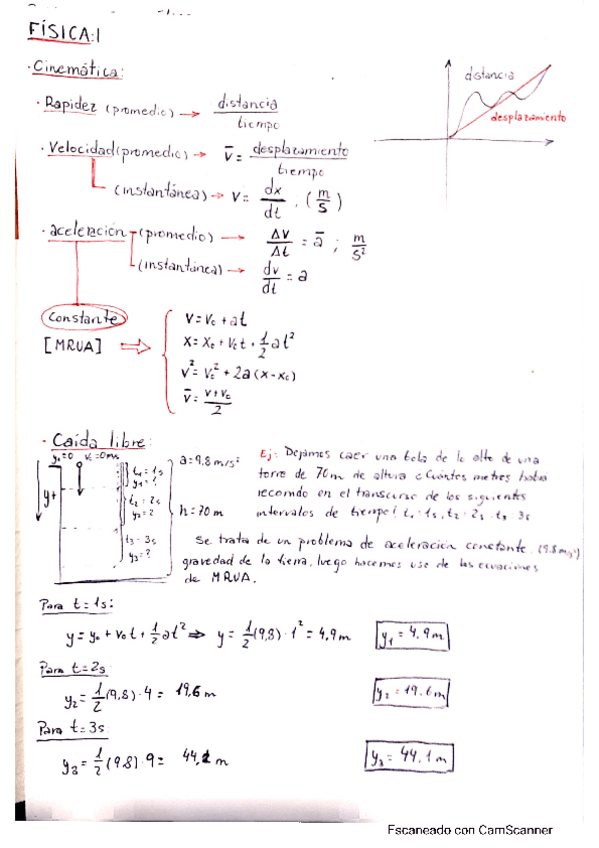 FÍSICA:1
· Cinemática:
distancia
desplazamiento
· Rapidez (promedio) → distancia / tiempo
· Velocidad (promedio) → v̄ = desplazamiento / tiempo
(instantánea) → v = dx/dt ; (m/s)
· aceleración (promedio) → ΔV/Δt = ā ; m/s²
(instantánea) → dv/dt = a
Constante
[MRUA] ⇒
V = V₀ + at
X = X₀ + V₀t + 1/2 at²
V² = V₀² + 2a(x-x₀)
v̄ = (V+V₀)/2
· Caída libre:
y₀=0 V₀=0m/s
y+
t₁ = 1s
y₁ = ?
t₂ = 2s
y₂ = ?
t₃ = 3s
y₃ = ?
a=9.8 m/s²
h=70m
Ej: Dejamos caer una bola de lo alto de una
torre de 70m de altura ¿Cuántos metros habrá
recorrido en el transcurso de los siguientes
intervalos de tiempo? t₁=1s, t₂=2s, t₃=3s
Se trata de un problema de aceleración constante (9.8 m/s²)
gravedad de la tierra, luego hacemos uso de las ecuaciones
de MRUA.
Para t=1s:
y = y₀ + V₀t + 1/2 at² ⇒ y = 1/2 (9,8) · 1² = 4,9m y₁ = 4.9m
Para t=2s:
y₂ = 1/2 (9,8) · 4 = 19,6m y₂ = 19.6m
Para t=3s:
y₃ = 1/2 (9,8) · 9 = 44,1 m y₃ = 44.1m
Escaneado con CamScanner